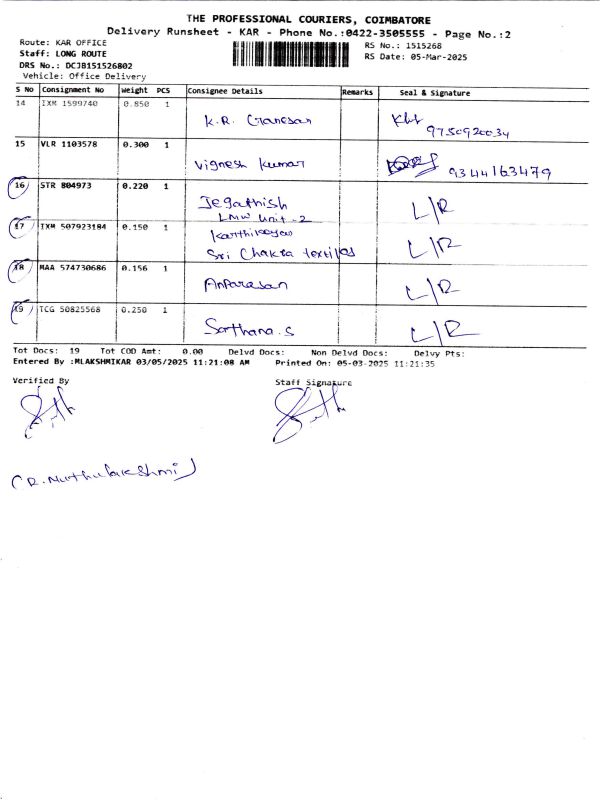 THE PROFESSIONAL COURIERS, COIMBATORE
Delivery Runsheet - KAR - Phone No.:0422-3505555 - Page No.:2
Route: KAR OFFICE
Staff: LONG ROUTE
DRS No.: DCJB151526802
Vehicle: Office Delivery
RS No.: 1515268
RS Date: 05-Mar-2025
S No Consignment No Weight PCS Consignee Details Remarks Seal & Signature
14 IXM 1599740 0.850 1 K.R. Ganesan 9750920034
15 VLR 1103578 0.300 1 Vignesh Kumar 9344163479
16 STR 804973 0.220 1 Jegathish L/R
LMW Unit-2
17 IXM 507923184 0.150 1 Karthikeyan L/R
Sri Chakra textiles
18 MAA 574730686 0.156 1 Anparasan L/R
19 TCG 50825568 0.250 1 Sarthana.S L/R
Tot Docs: 19 Tot COD Amt: 0.00 Delvd Docs: Non Delvd Docs: Delvy Pts:
Entered By :MLAKSHMIKAR 03/05/2025 11:21:08 AM Printed On: 05-03-2025 11:21:35
Verified By Staff Signature
(R. Muthulakshmi)